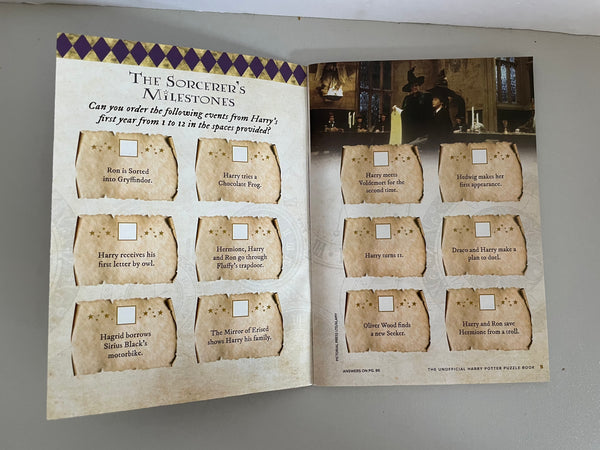 The Sorcerer's
Milestones
Can you order the following events from Harry's
first year from 1 to 12 in the spaces provided?
Ron is Sorted
into Gryffindor.
Harry tries a
Chocolate Frog.
Harry receives his
first letter by owl.
Hermione, Harry
and Ron go through
Fluffy's trapdoor.
Hagrid borrows
Sirius Black's
motorbike.
The Mirror of Erised
shows Harry his family.
Harry meets
Voldemort for the
second time.
Hedwig makes her
first appearance.
Harry turns 11.
Draco and Harry make a
plan to duel.
Oliver Wood finds
a new Seeker.
Harry and Ron save
Hermione from a troll.
ANSWERS ON PG. 90
THE UNOFFICIAL HARRY POTTER PUZZLE BOOK